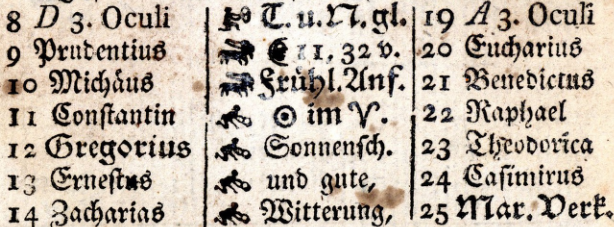 8 D 3. Oculi T. u. N. gl. 19 A 3. Oculi
9 Prudentius ☾ 11, 32 v. 20 Eucharius
10 Michäus Frühl. Anf. 21 Benedictus
11 Constantin ☉ im ♈. 22 Raphael
12 Gregorius Sonnensch. 23 Theodorica
13 Ernestus und gute, 24 Casimirus
14 Zacharias Witterung, 25 Mar. Verk.